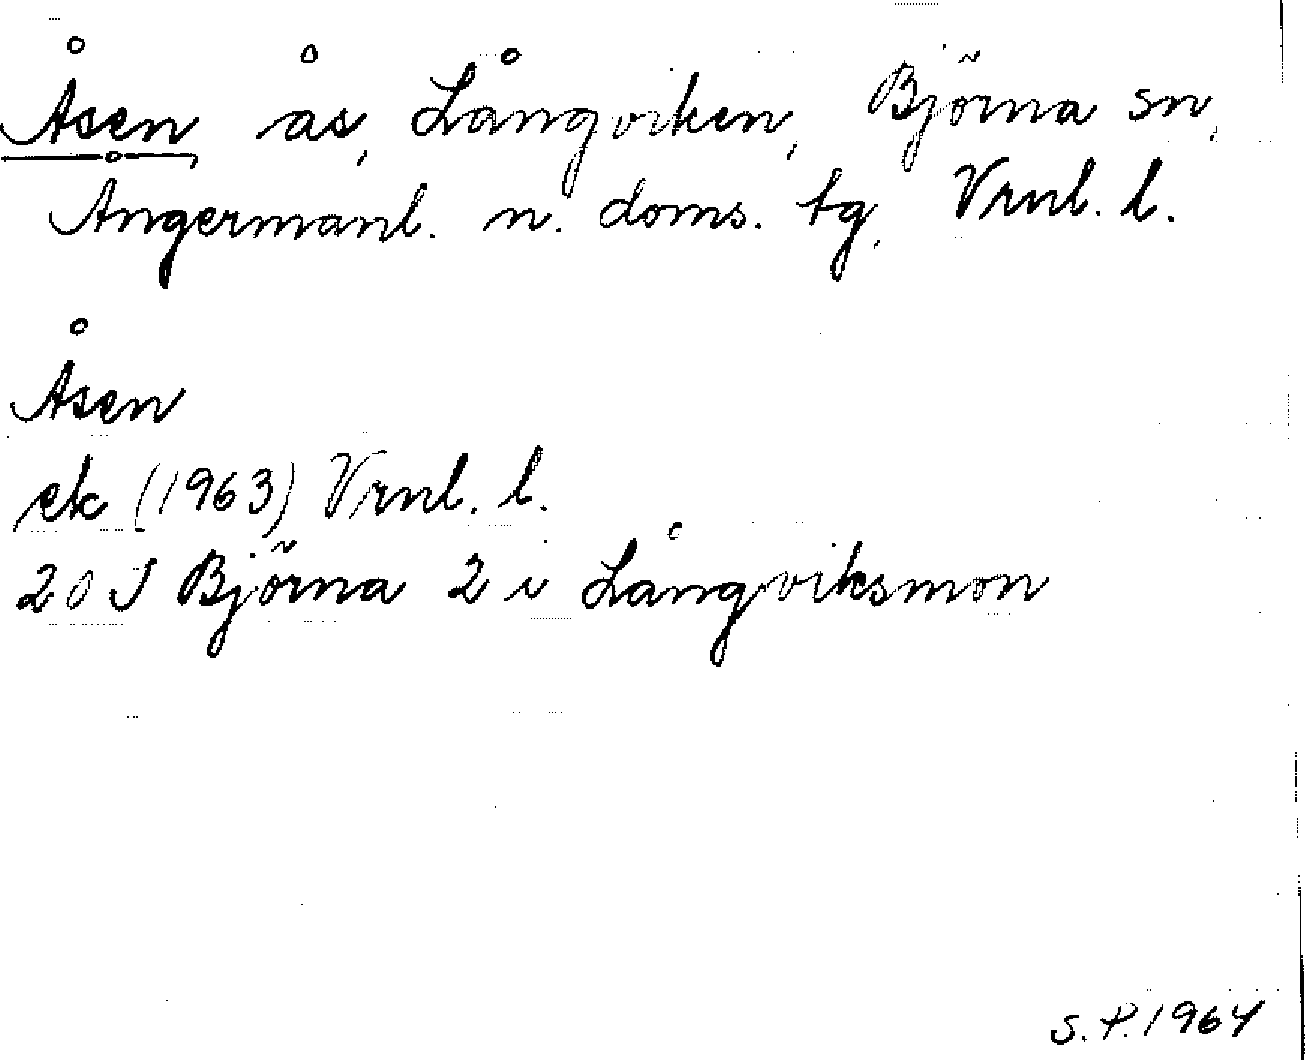 Åsen ås, Långviken, Björna sn,
Ångermanl. n. doms. tg, Vrnl. l.
Åsen
ek (1963) Vrnl. l.
20 J Björna 2 i Långviksmon
S.P. 1964